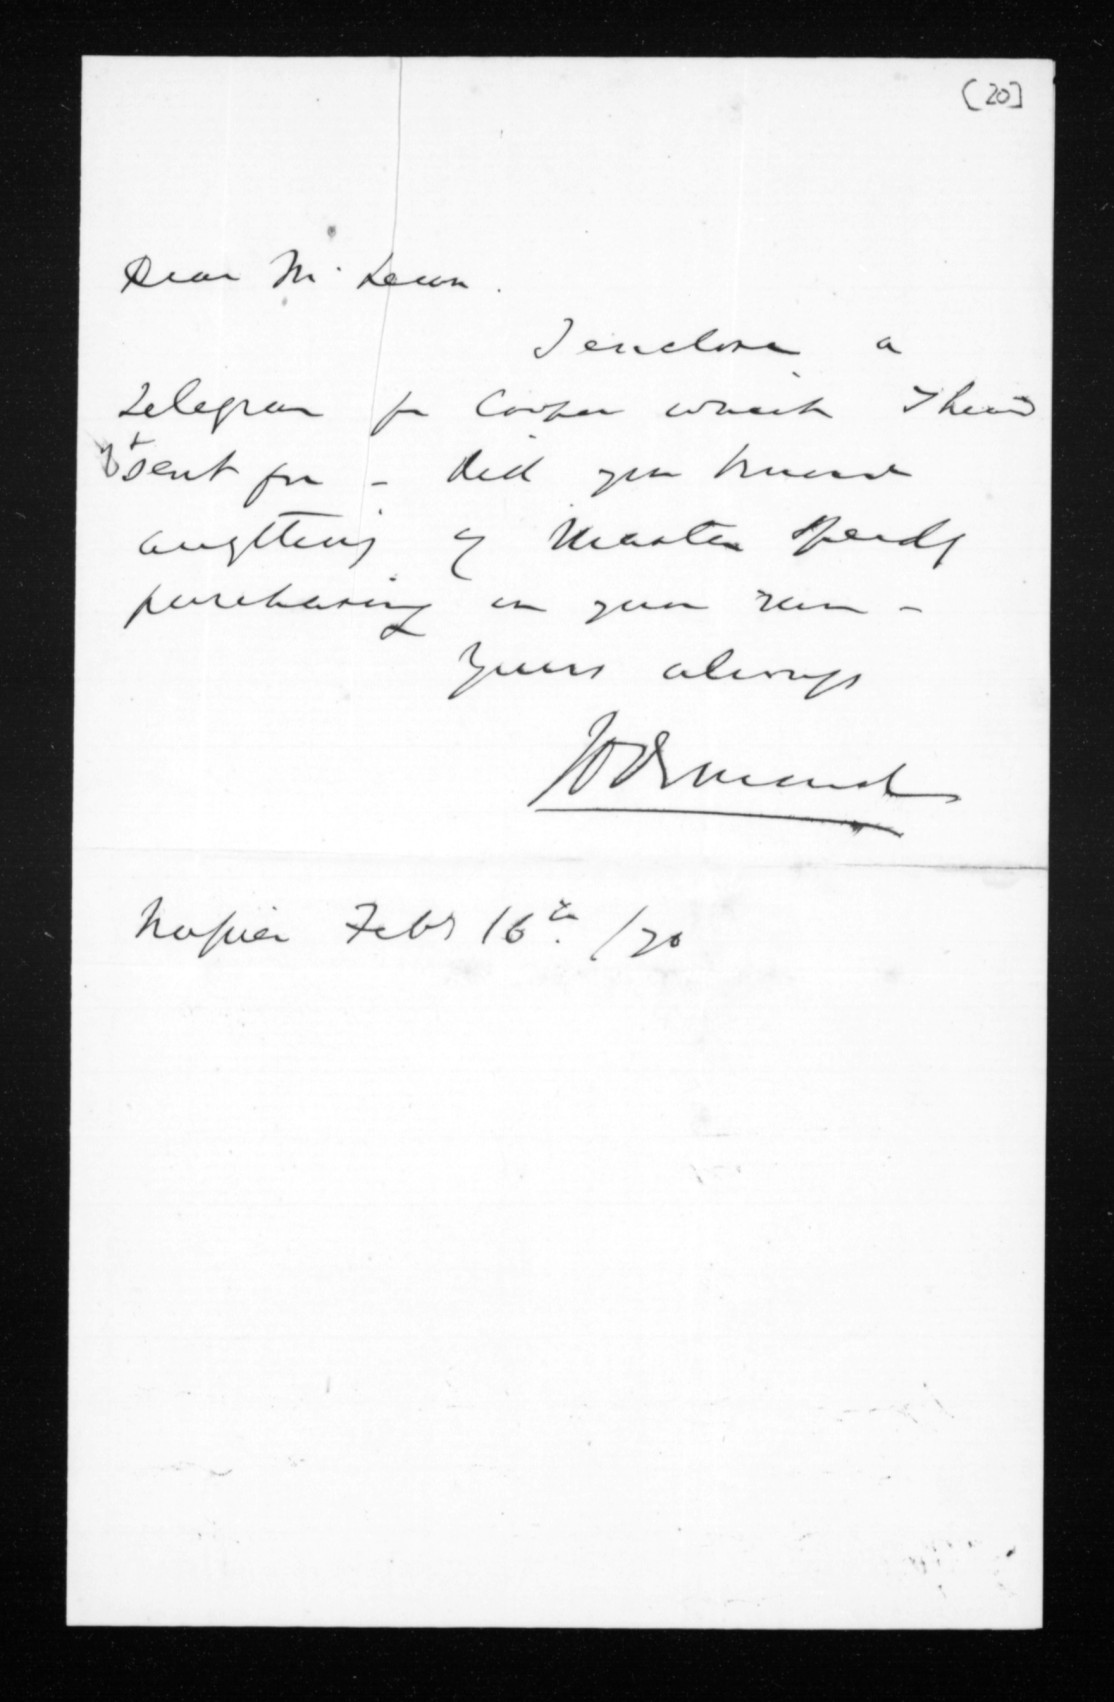 [20]
Dear McLean.
I enclose a
telegram fr Cooper which I have
sent for - Did you know
anything of Master
purchasing in your run -
Yours always
JDOrmond
Napier Feby 16th /70